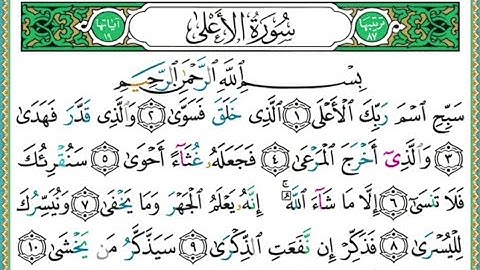 ترتيبها ٨٧ سُورَةُ الأَعْلَىٰ آياتها ١٩
بِسْمِ ٱللَّهِ ٱلرَّحْمَٰنِ ٱلرَّحِيمِ
سَبِّحِ ٱسْمَ رَبِّكَ ٱلْأَعْلَى ١ ٱلَّذِى خَلَقَ فَسَوَّىٰ ٢ وَٱلَّذِى قَدَّرَ فَهَدَىٰ
٣ وَٱلَّذِىٓ أَخْرَجَ ٱلْمَرْعَىٰ ٤ فَجَعَلَهُۥ غُثَآءً أَحْوَىٰ ٥ سَنُقْرِئُكَ
فَلَا تَنسَىٰٓ ٦ إِلَّا مَا شَآءَ ٱللَّهُ ۚ إِنَّهُۥ يَعْلَمُ ٱلْجَهْرَ وَمَا يَخْفَىٰ ٧ وَنُيَسِّرُكَ
لِلْيُسْرَىٰ ٨ فَذَكِّرْ إِن نَّفَعَتِ ٱلذِّكْرَىٰ ٩ سَيَذَّكَّرُ مَن يَخْشَىٰ ١٠